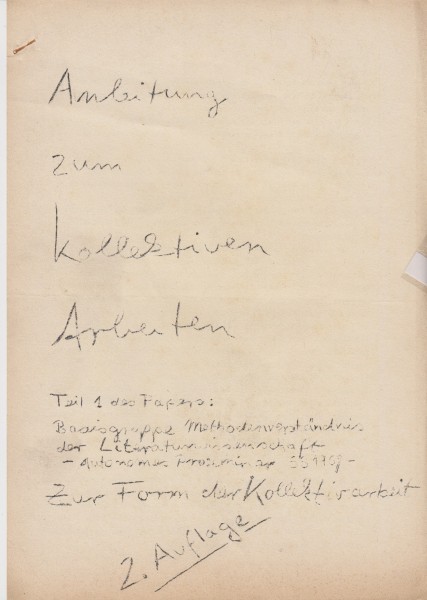 Anleitung
zum
Kollektiven
Arbeiten
Teil 1 des Papers:
Basisgruppe Methodenverständnis
der Literaturwissenschaft
- Autonomes Proseminar SS 1969 -
Zur Form der Kollektivarbeit
2. Auflage